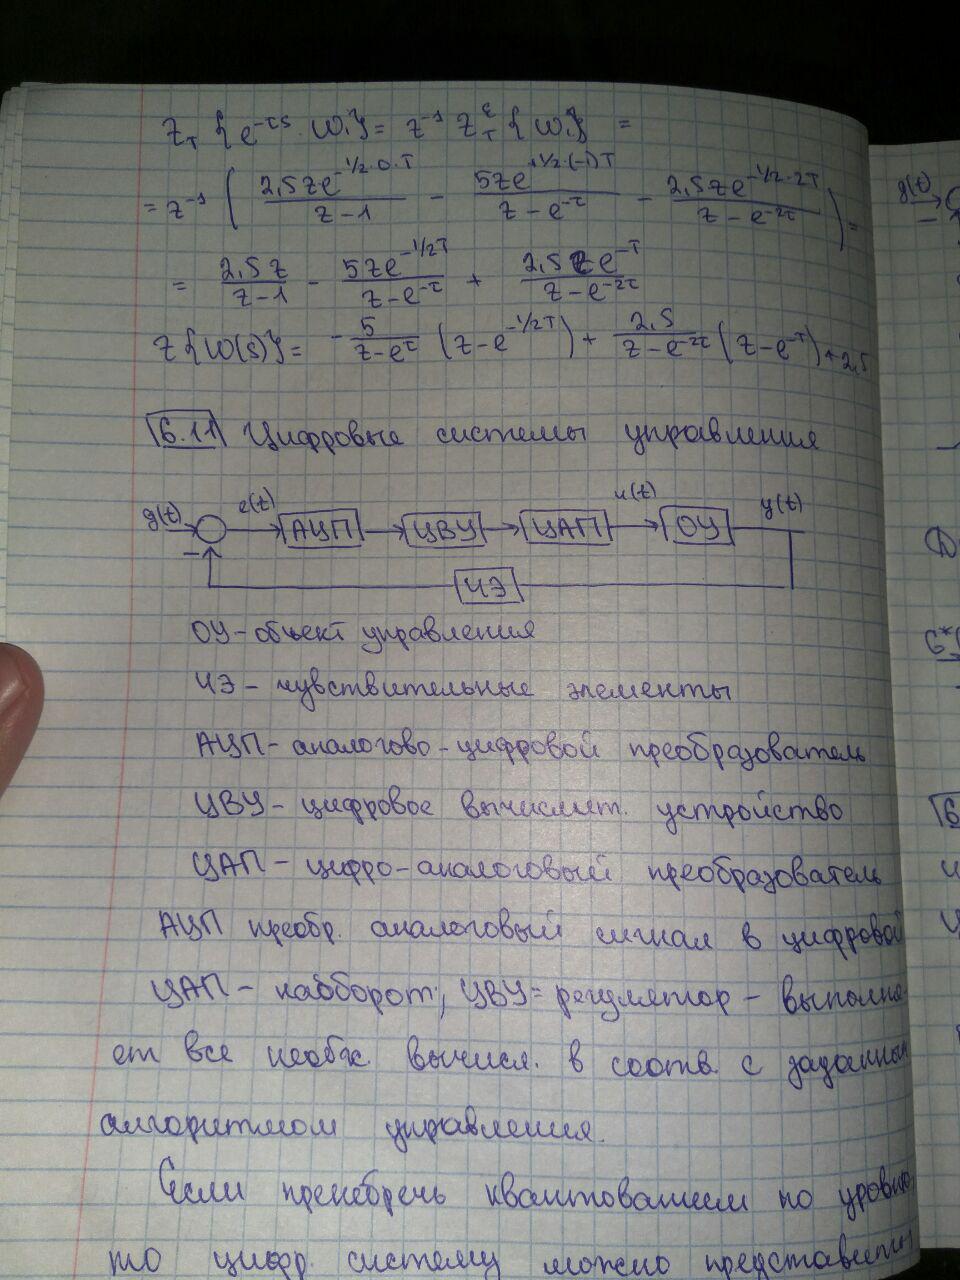 Z_T {e^{-τs} · W₁} = z^{-1} Z_T^ε {W₁} =
= z^{-1} ( 2,5ze^{-1/2·0·T} / (z-1) - 5ze^{+1/2·(-1)T} / (z-e^{-τ}) - 2,5ze^{-1/2·2T} / (z-e^{-2τ}) ) =
= 2,5z / (z-1) - 5ze^{-1/2T} / (z-e^{-τ}) + 2,5ze^{-T} / (z-e^{-2τ})
Z{W(s)} = - 5 / (z-e^{τ}) (z-e^{-1/2T}) + 2,5 / (z-e^{-2τ}) (z-e^{-T}) + 2,5
6.11 Цифровые системы управления
g(t) e(t) АЦП ЦВУ ЦАП u(t) ОУ y(t)
- ЧЭ
ОУ - объект управления
ЧЭ - чувствительные элементы
АЦП - аналогово-цифровой преобразователь
ЦВУ - цифровое вычислит. устройство
ЦАП - цифро-аналоговый преобразователь
АЦП преобр. аналоговый сигнал в цифровой
ЦАП - наоборот, ЦВУ = регулятор - выполня-
ет все необх. вычисл. в соотв. с заданным
алгоритмом управления.
Если пренебречь квантованием по уровню,
то цифр. систему можно представить
g(t)
-
6